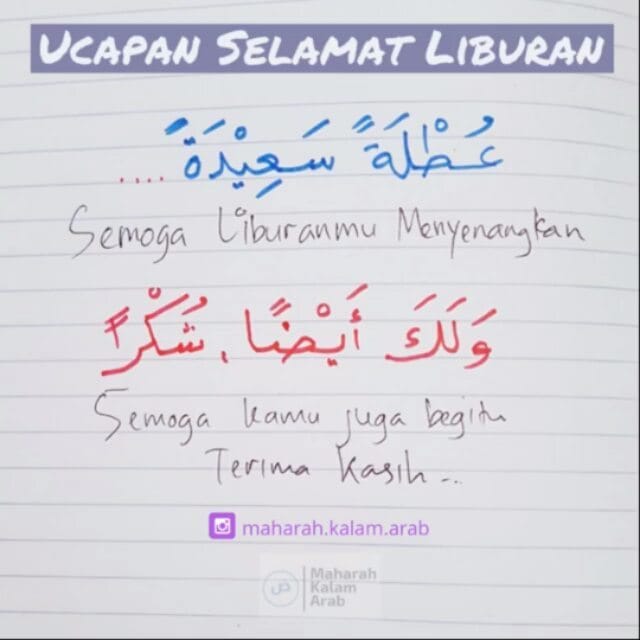 UCAPAN SELAMAT LIBURAN
عُطْلَةً سَعِيْدَةً ....
Semoga Liburanmu Menyenangkan
وَلَكَ أَيْضًا، شُكْرًا
Semoga kamu juga begitu
Terima Kasih..
maharah.kalam.arab
ض
Maharah
Kalam
Arab